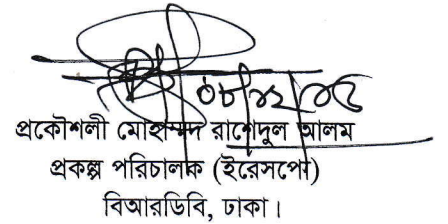 প্রকৌশলী মোহাম্মদ রাশেদুল আলম
প্রকল্প পরিচালক (ইরেসপো)
বিআরডিবি, ঢাকা।